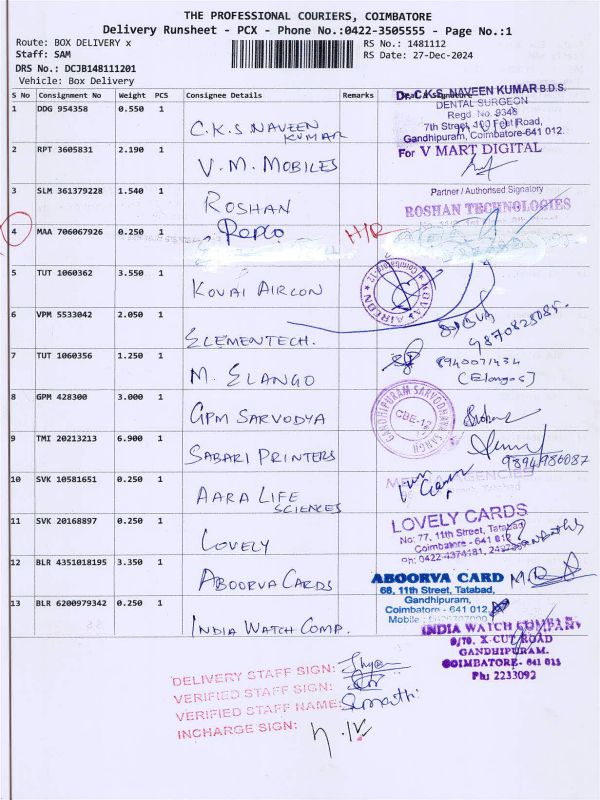 THE PROFESSIONAL COURIERS, COIMBATORE
Delivery Runsheet - PCX - Phone No.:0422-3505555 - Page No.:1
Route: BOX DELIVERY x
RS No.: 1481112
Staff: SAM
RS Date: 27-Dec-2024
DRS No.: DCJB148111201
Vehicle: Box Delivery
S No Consignment No Weight PCS Consignee Details Remarks
1 DDG 954358 0.550 1 C.K.S NAVEEN KUMAR
Dr. C.K.S. NAVEEN KUMAR B.D.S.
DENTAL SURGEON
Regd. No. 9348
7th Street, 100 Feet Road,
Gandhipuram, Coimbatore-641 012.
2 RPT 3605831 2.190 1 V.M. MOBILES
For V MART DIGITAL
Partner / Authorised Signatory
3 SLM 361379228 1.540 1 ROSHAN
ROSHAN TECHNOLOGIES
4 MAA 706067926 0.250 1 Repco H/R
5 TUT 1060362 3.550 1 KOVAI AIRCON
KOVAI AIRCON
Coimbatore-12
6 VPM 5533042 2.050 1 ELEMENTECH.
9870825085.
7 TUT 1060356 1.250 1 M. ELANGO
8940071434
(Elango)
8 GPM 428300 3.000 1 GPM SARVODYA
GANDHIPURAM SARVODHAYA SANGH
CBE-12
9 TMI 20213213 6.900 1 SABARI PRINTERS
9894986087
10 SVK 10581651 0.250 1 AARA LIFE SCIENCES
AGENCIES
Tatabad
11 SVK 20168897 0.250 1 LOVELY
LOVELY CARDS
No: 77, 11th Street, Tatabad
Coimbatore - 641 012
Ph: 0422-4374181,
12 BLR 4351018195 3.350 1 ABOORVA CARDS
ABOORVA CARD
66, 11th Street, Tatabad,
Gandhipuram,
Coimbatore - 641 012.
Mobile :
13 BLR 6200979342 0.250 1 INDIA WATCH COMP.
INDIA WATCH COMPANY
9/70, X-CUT ROAD
GANDHIPURAM.
COIMBATORE- 641 012
Ph: 2233092
DELIVERY STAFF SIGN:
VERIFIED STAFF SIGN:
VERIFIED STAFF NAME: Sumathi
INCHARGE SIGN: